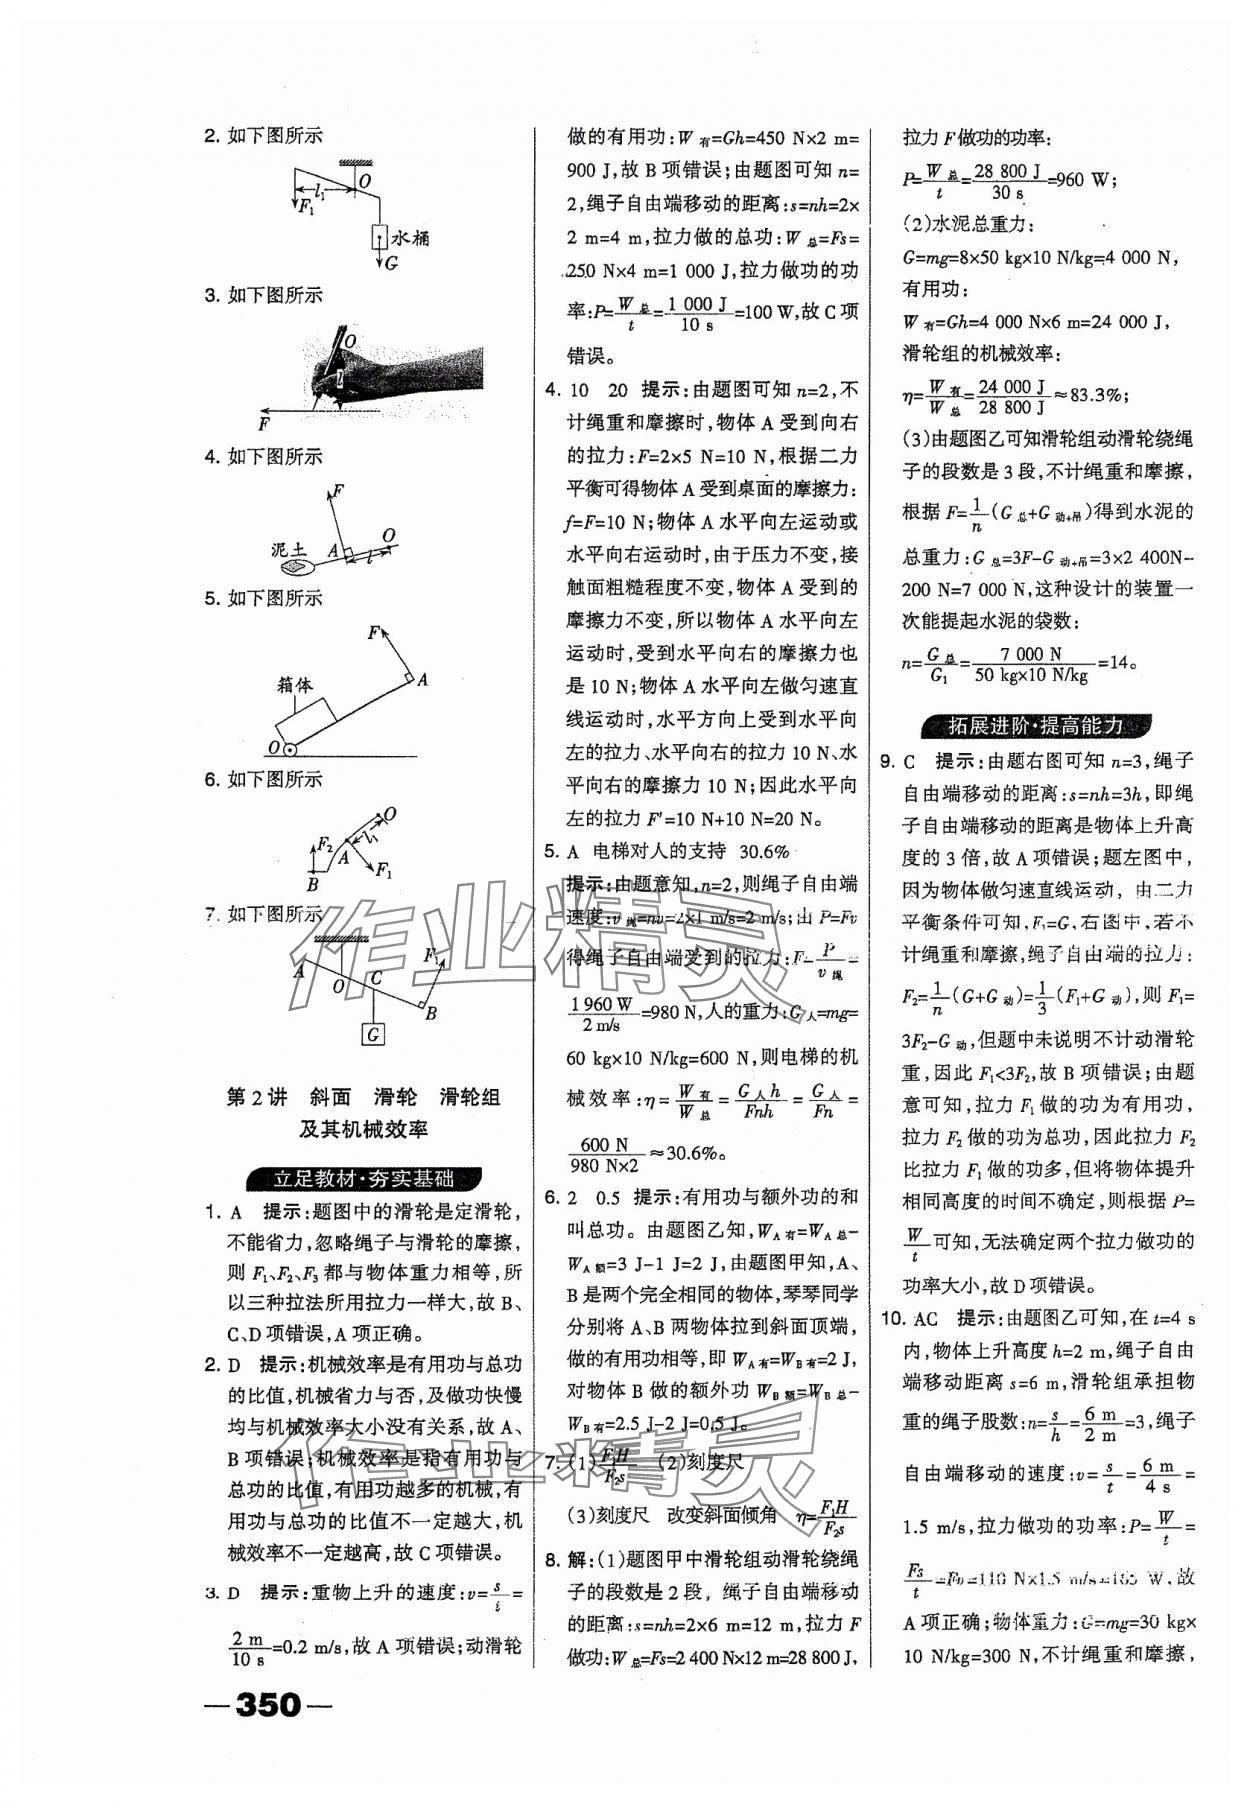 2. 如下图所示
O
l₁
F₁
水桶
G
3. 如下图所示
O
l
F
4. 如下图所示
F
泥土
A
O
l
5. 如下图所示
F
箱体
A
O
6. 如下图所示
O
F₂
l₁
A
F₁
B
7. 如下图所示
A
O
C
F₁
B
G
第2讲 斜面 滑轮 滑轮组
及其机械效率
立足教材·夯实基础
1. A 提示:题图中的滑轮是定滑轮,
不能省力,忽略绳子与滑轮的摩擦,
则 F₁、F₂、F₃ 都与物体重力相等,所
以三种拉法所用拉力一样大,故 B、
C、D 项错误,A 项正确。
2. D 提示:机械效率是有用功与总功
的比值,机械省力与否,及做功快慢
均与机械效率大小没有关系,故 A、
B 项错误;机械效率是指有用功与
总功的比值,有用功越多的机械,有
用功与总功的比值不一定越大,机
械效率不一定越高,故 C 项错误。
3. D 提示:重物上升的速度:v=s/t=
2 m/10 s=0.2 m/s,故 A 项错误;动滑轮
—350—
做的有用功:W有=Gh=450 N×2 m=
900 J,故 B 项错误;由题图可知 n=
2,绳子自由端移动的距离:s=nh=2×
2 m=4 m,拉力做的总功:W总=Fs=
250 N×4 m=1 000 J,拉力做功的功
率:P=W总/t=1 000 J/10 s=100 W,故 C 项
错误。
4. 10 20 提示:由题图可知 n=2,不
计绳重和摩擦时,物体 A 受到向右
的拉力:F=2×5 N=10 N,根据二力
平衡可得物体 A 受到桌面的摩擦力:
f=F=10 N;物体 A 水平向左运动或
水平向右运动时,由于压力不变,接
触面粗糙程度不变,物体 A 受到的
摩擦力不变,所以物体 A 水平向左
运动时,受到水平向右的摩擦力也
是 10 N;物体 A 水平向左做匀速直
线运动时,水平方向上受到水平向
左的拉力、水平向右的拉力 10 N、水
平向右的摩擦力 10 N;因此水平向
左的拉力 F'=10 N+10 N=20 N。
5. A 电梯对人的支持 30.6%
提示:由题意知,n=2,则绳子自由端
速度:v绳=nv=2×1 m/s=2 m/s;由 P=Fv
得绳子自由端受到的拉力:F=P/v绳=
1 960 W/2 m/s=980 N,人的重力:G人=mg=
60 kg×10 N/kg=600 N,则电梯的机
械效率:η=W有/W总=G人h/Fnh=G人/Fn=
600 N/980 N×2≈30.6%。
6. 2 0.5 提示:有用功与额外功的和
叫总功。由题图乙知,W A有=W A总-
W A额=3 J-1 J=2 J,由题图甲知,A、
B 是两个完全相同的物体,琴琴同学
分别将 A、B 两物体拉到斜面顶端,
做的有用功相等,即 W A有=W B有=2 J,
对物体 B 做的额外功 W B额=W B总-
W B有=2.5 J-2 J=0.5 J。
7. (1)F₁H/F₂s (2)刻度尺
(3)刻度尺 改变斜面倾角 η=F₁H/F₂s
8. 解:(1)题图甲中滑轮组动滑轮绕绳
子的段数是 2 段, 绳子自由端移动
的距离:s=nh=2×6 m=12 m,拉力 F
做功:W总=Fs=2 400 N×12 m=28 800 J,
拉力 F 做功的功率:
P=W总/t=28 800 J/30 s=960 W;
(2)水泥总重力:
G=mg=8×50 kg×10 N/kg=4 000 N,
有用功:
W有=Gh=4 000 N×6 m=24 000 J,
滑轮组的机械效率:
η=W有/W总=24 000 J/28 800 J≈83.3%;
(3)由题图乙可知滑轮组动滑轮绕绳
子的段数是 3 段,不计绳重和摩擦,
根据 F=1/n(G总+G动+吊)得到水泥的
总重力:G总=3F-G动+吊=3×2 400N-
200 N=7 000 N,这种设计的装置一
次能提起水泥的袋数:
n=G总/G₁=7 000 N/50 kg×10 N/kg=14。
拓展进阶·提高能力
9. C 提示:由题右图可知 n=3,绳子
自由端移动的距离:s=nh=3h,即绳
子自由端移动的距离是物体上升高
度的 3 倍,故 A 项错误;题左图中,
因为物体做匀速直线运动, 由二力
平衡条件可知,F₁=G,右图中,若不
计绳重和摩擦,绳子自由端的拉力:
F₂=1/n(G+G动)=1/3(F₁+G动),则 F₁=
3F₂-G动,但题中未说明不计动滑轮
重,因此 F₁<3F₂,故 B 项错误;由题
意可知,拉力 F₁ 做的功为有用功,
拉力 F₂ 做的功为总功,因此拉力 F₂
比拉力 F₁ 做的功多,但将物体提升
相同高度的时间不确定,则根据 P=
W/t可知,无法确定两个拉力做功的
功率大小,故 D 项错误。
10. AC 提示:由题图乙可知,在 t=4 s
内,物体上升高度 h=2 m,绳子自由
端移动距离 s=6 m,滑轮组承担物
重的绳子股数:n=s/h=6 m/2 m=3,绳子
自由端移动的速度:v=s/t=6 m/4 s=
1.5 m/s,拉力做功的功率:P=W/t=
Fs/t=Fv=110 N×1.5 m/s=165 W,故
A 项正确;物体重力:G=mg=30 kg×
10 N/kg=300 N,不计绳重和摩擦,
作业精灵
作业精灵